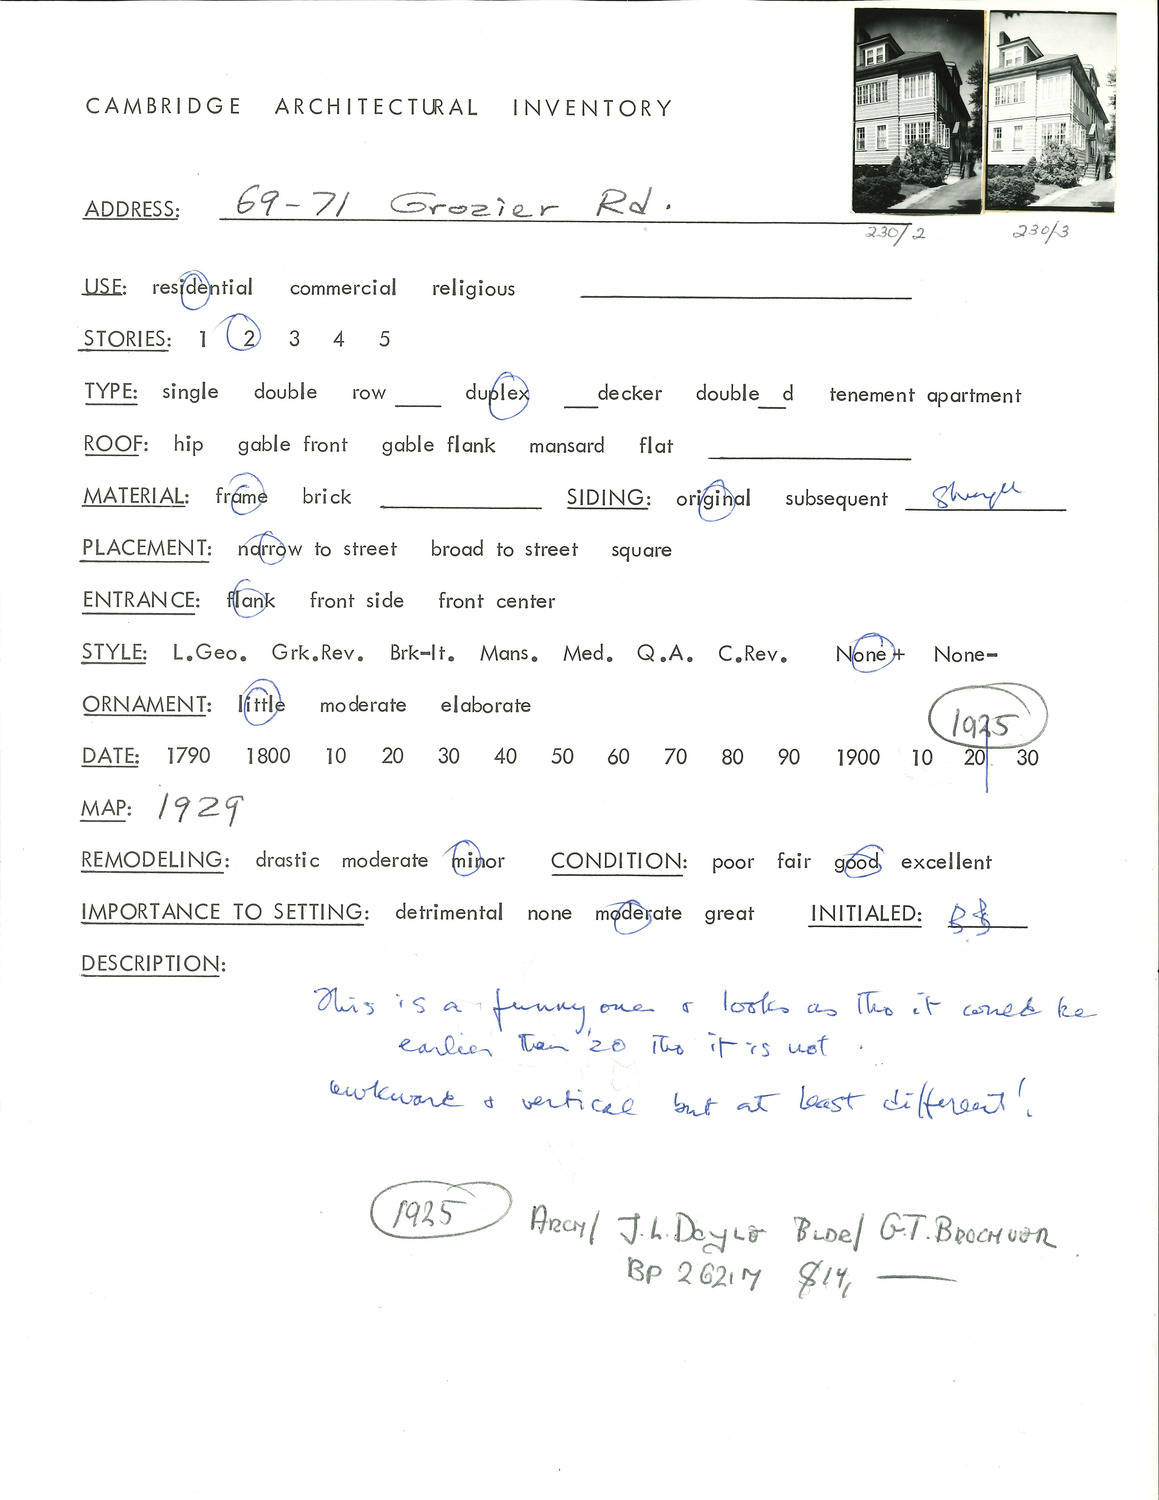 CAMBRIDGE ARCHITECTURAL INVENTORY
ADDRESS: 69-71 Grozier Rd.
230/2 230/3
USE: residential commercial religious
STORIES: 1 2 3 4 5
TYPE: single double row ____ duplex ____decker double__d tenement apartment
ROOF: hip gable front gable flank mansard flat
MATERIAL: frame brick SIDING: original subsequent Shingle
PLACEMENT: narrow to street broad to street square
ENTRANCE: flank front side front center
STYLE: L.Geo. Grk.Rev. Brk-It. Mans. Med. Q.A. C.Rev. None+ None-
ORNAMENT: little moderate elaborate
1925
DATE: 1790 1800 10 20 30 40 50 60 70 80 90 1900 10 20 30
MAP: 1929
REMODELING: drastic moderate minor CONDITION: poor fair good excellent
IMPORTANCE TO SETTING: detrimental none moderate great INITIALED:
DESCRIPTION:
This is a funny one & looks as tho it could be
earlier than '20 tho it is not.
awkward & vertical but at least different!
1925 ARCH/ J.L. Doyle BLDR/ G.T. BROCHUOR
BP 26217 $14, —